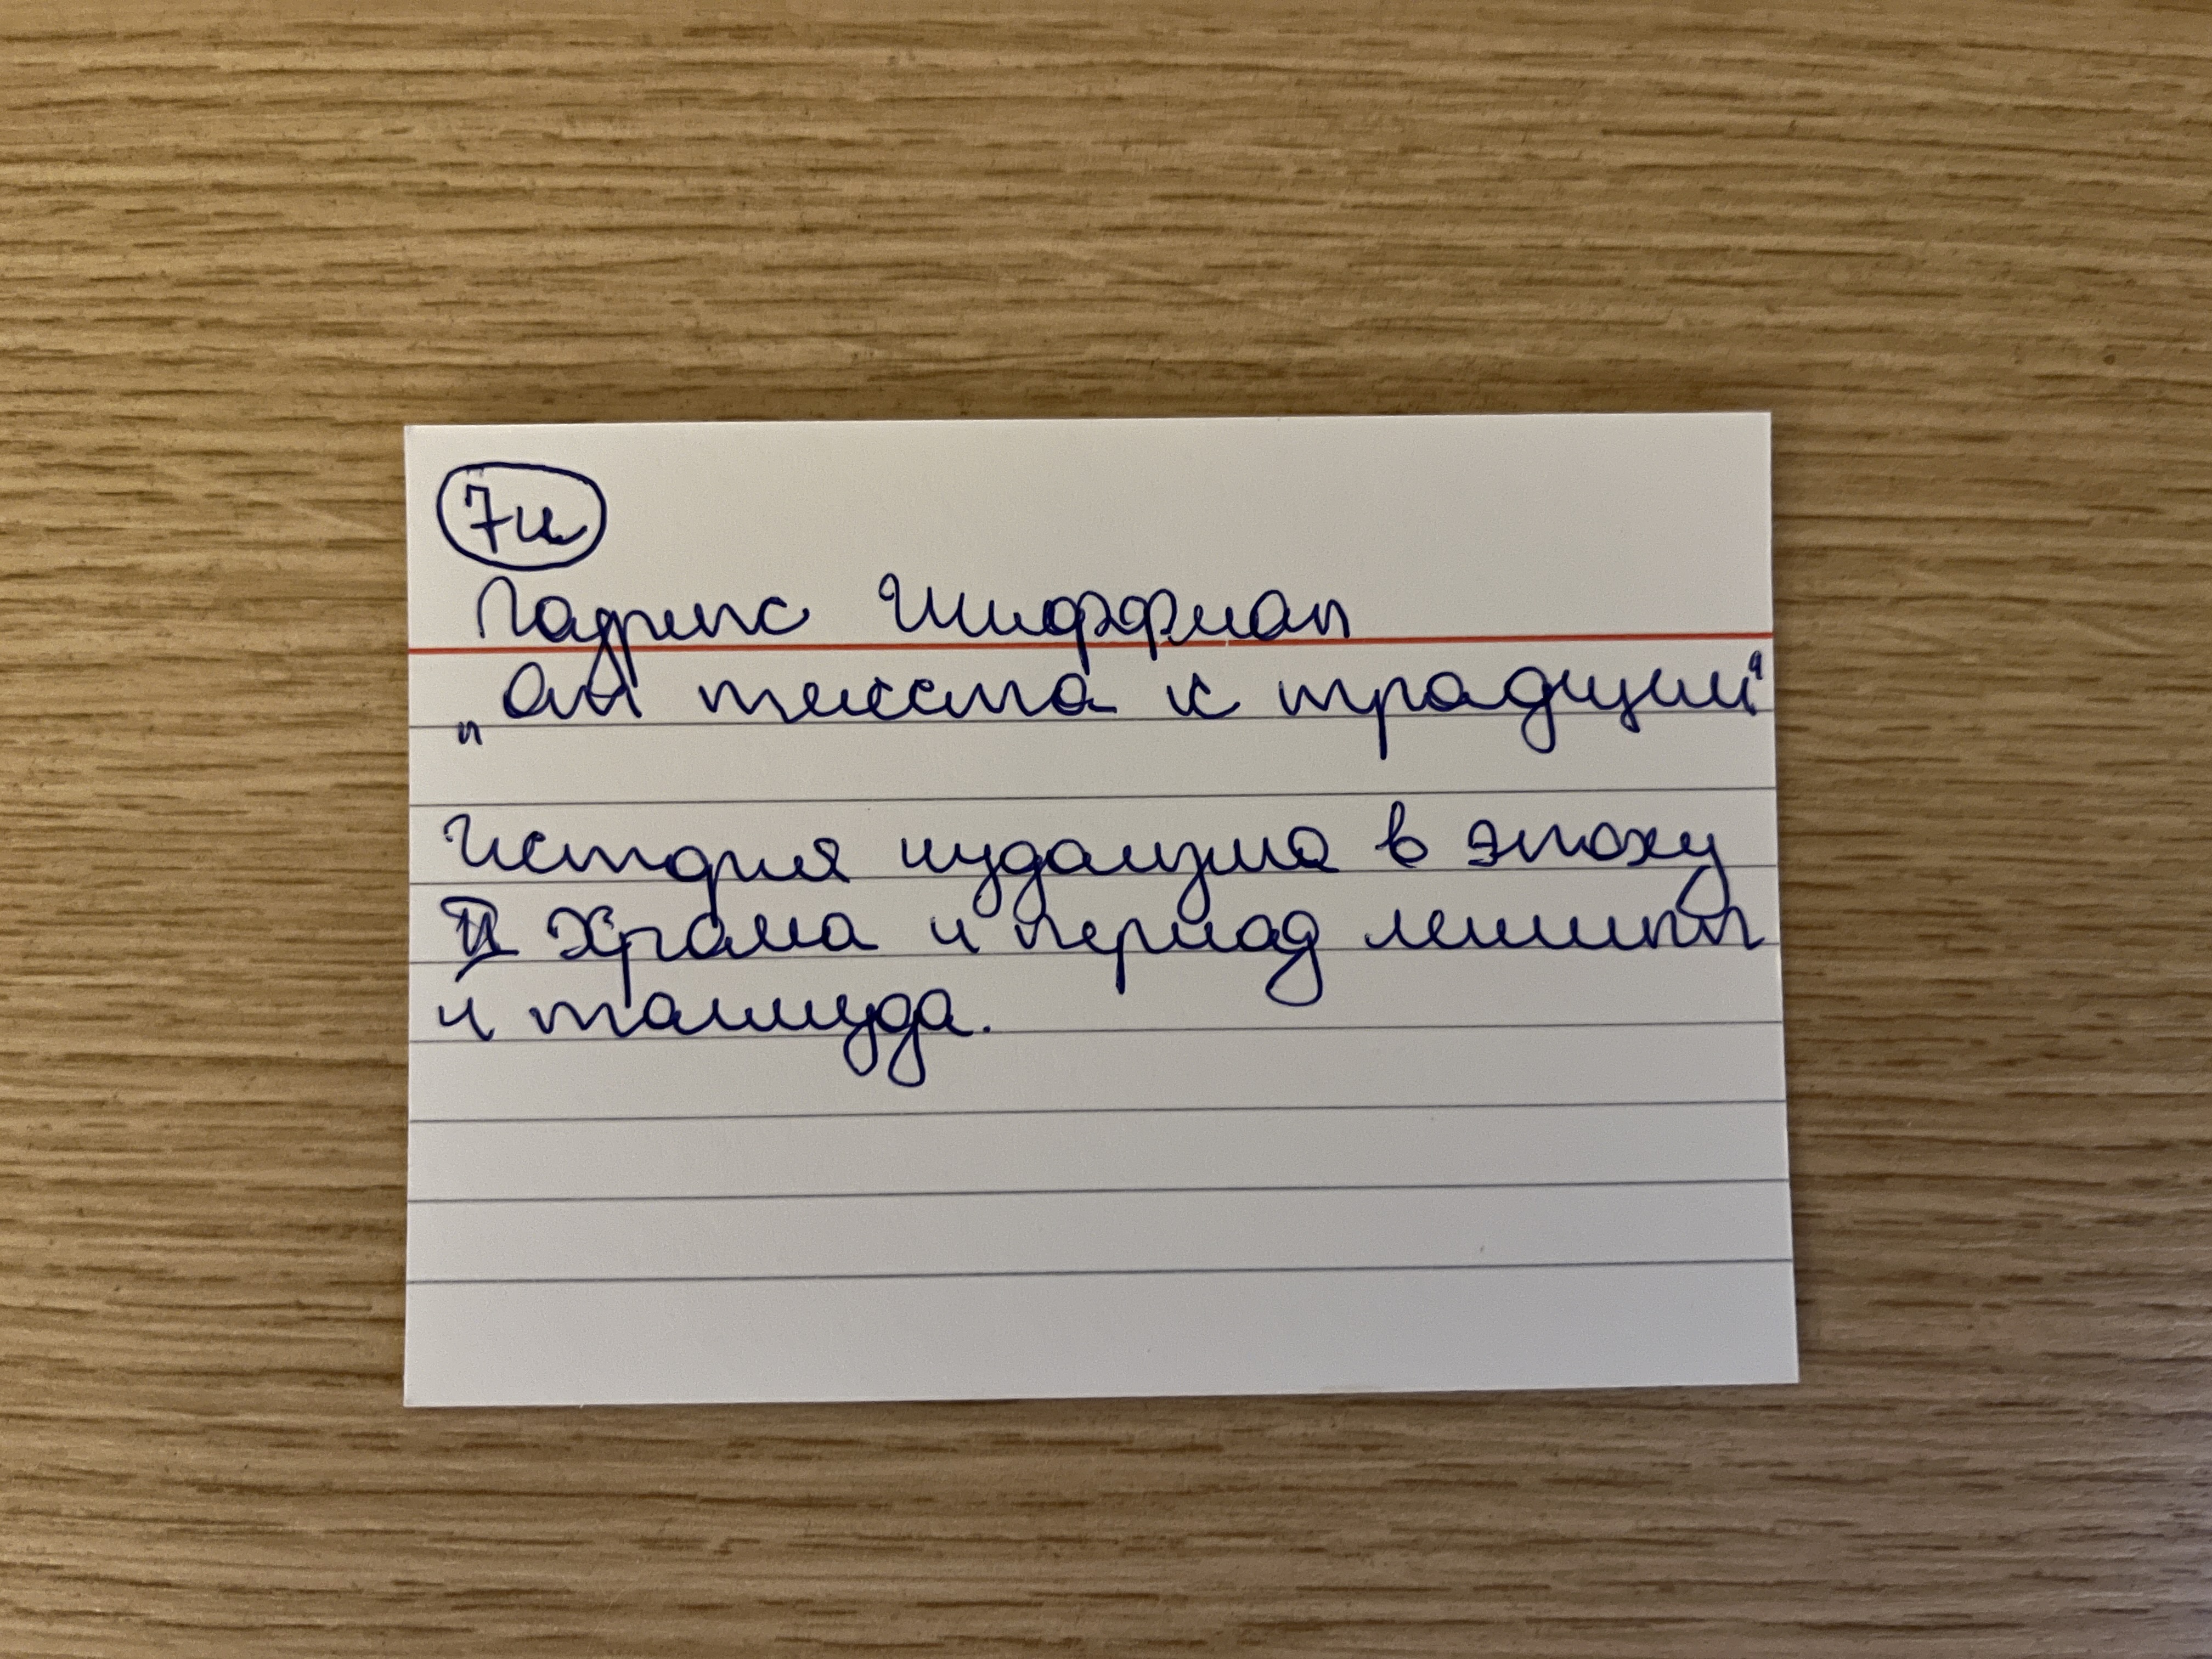 7и
Гаррис Шиффман
„От текста к традиции“
История иудаизма в эпоху
II Храма и период мишны
и талмуда.